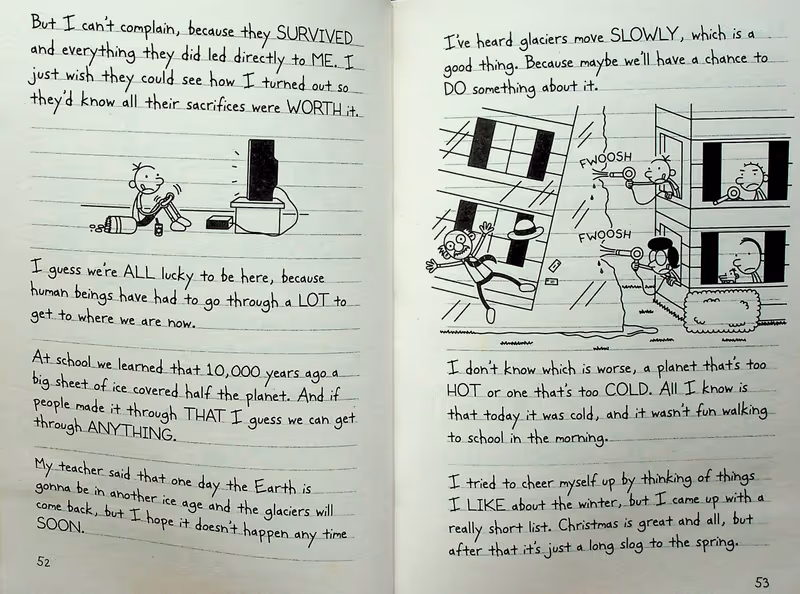 But I can't complain, because they SURVIVED
and everything they did led directly to ME. I
just wish they could see how I turned out so
they'd know all their sacrifices were WORTH it.
I guess we're ALL lucky to be here, because
human beings have had to go through a LOT to
get to where we are now.
At school we learned that 10,000 years ago a
big sheet of ice covered half the planet. And if
people made it through THAT I guess we can get
through ANYTHING.
My teacher said that one day the Earth is
gonna be in another ice age and the glaciers will
come back, but I hope it doesn't happen any time
SOON.
52
I've heard glaciers move SLOWLY, which is a
good thing. Because maybe we'll have a chance to
DO something about it.
FWOOSH
FWOOSH
I don't know which is worse, a planet that's too
HOT or one that's too COLD. All I know is
that today it was cold, and it wasn't fun walking
to school in the morning.
I tried to cheer myself up by thinking of things
I LIKE about the winter, but I came up with a
really short list. Christmas is great and all, but
after that it's just a long slog to the spring.
53